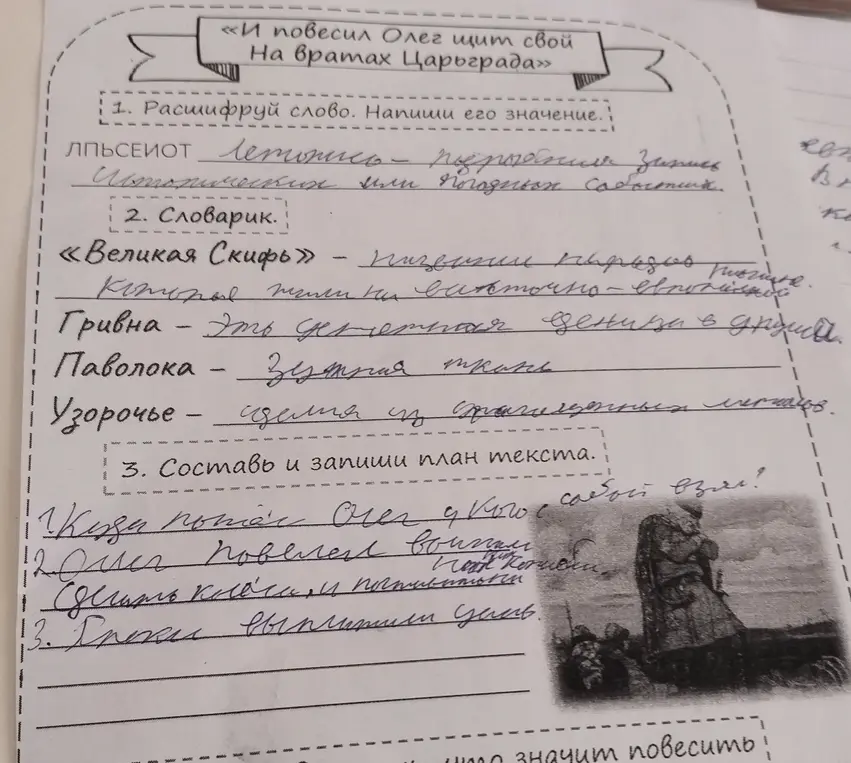 «И повесил Олег щит свой
На вратах Царьграда»
1. Расшифруй слово. Напиши его значение.
ЛПЬСЕИОТ Летопись – запись
исторических или погодных
2. Словарик.
«Великая Скифь» – народов
которые жили на восточно-европейской
Гривна – Это денежная единица в
Паволока – ткань
Узорочье – из драгоценных металов.
3. Составь и запиши план текста.
1. Куда пошёл Олег и кого с собой взял?
2. Олег повелел воинам
сделать колёса, и поставить на них корабли.
3. Греки выплатили дань.
что значит повесить